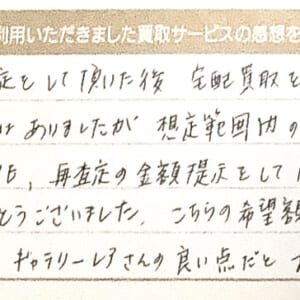 利用いただきました買取サービスの感想を
定をして頂いた後 宅配買取を
はありましたが 想定範囲内の
も、再査定の金額提示をして
とうございました。こちらの希望額
ギャラリーレアさんの良い点だと